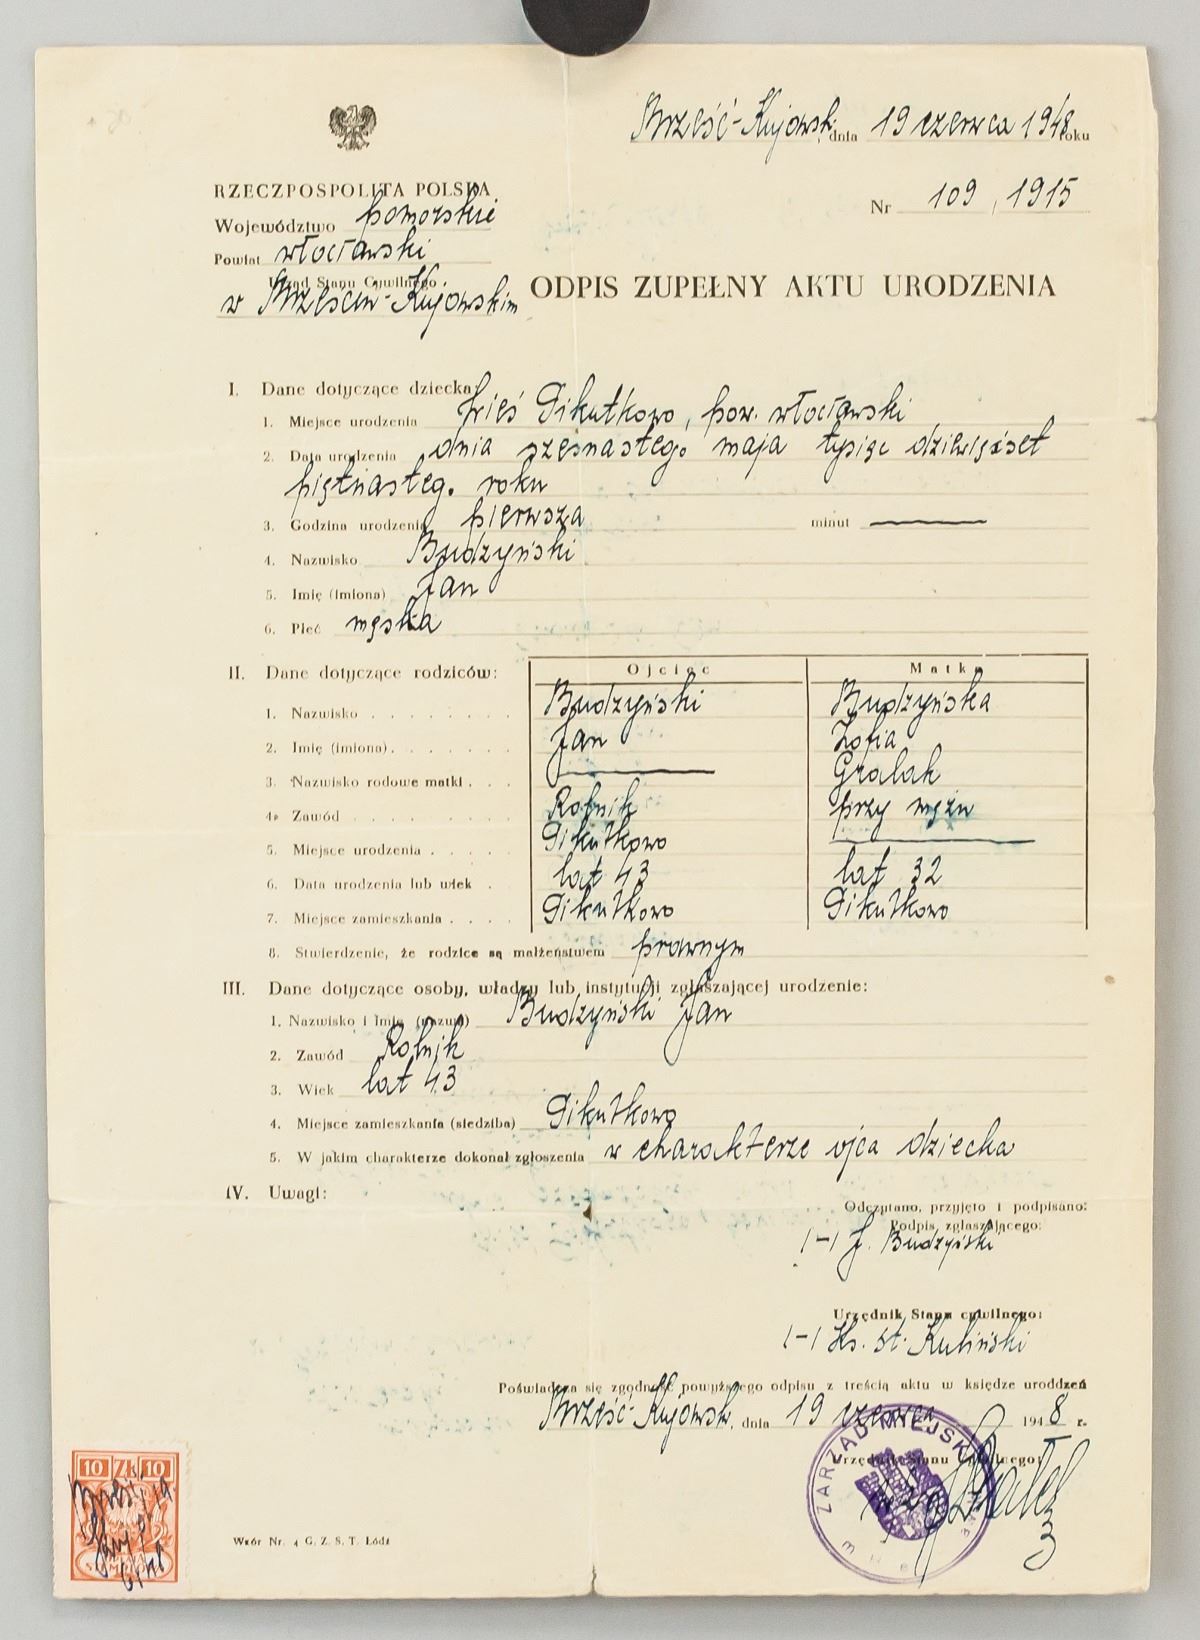 Brześć-Kujowski, dnia 19 czerwca 1948 roku
RZECZPOSPOLITA POLSKA
Nr 109, 1915
Województwo pomorskie
Powiat włocławski
Urząd Stanu Cywilnego
w Brześciu-Kujowskim
ODPIS ZUPEŁNY AKTU URODZENIA
I. Dane dotyczące dziecka:
1. Miejsce urodzenia wieś Pikutkowo, pow. włocławski
2. Data urodzenia dnia szesnastego maja tysiąc dziewięćset
piętnastego roku
3. Godzina urodzenia pierwsza minut
4. Nazwisko Budzyński
5. Imię (imiona) Jan
6. Płeć męska
II. Dane dotyczące rodziców: Ojciec Matka
1. Nazwisko Budzyński Budzyńska
2. Imię (imiona) Jan Zofia
3. Nazwisko rodowe matki Gralak
4. Zawód Rolnik przy mężu
5. Miejsce urodzenia Pikutkowo
6. Data urodzenia lub wiek lat 43 lat 32
7. Miejsce zamieszkania Pikutkowo Pikutkowo
8. Stwierdzenie, że rodzice są małżeństwem prawnym
III. Dane dotyczące osoby, władzy lub instytucji zgłaszającej urodzenie:
1. Nazwisko i imię (nazwa) Budzyński Jan
2. Zawód Rolnik
3. Wiek lat 43
4. Miejsce zamieszkania (siedziba) Pikutkowo
5. W jakim charakterze dokonał zgłoszenia w charakterze ojca dziecka
IV. Uwagi:
Odczytano, przyjęto i podpisano:
Podpis zgłaszającego:
/-/ J. Budzyński
Urzędnik Stanu cywilnego:
/-/ Ks. St. Kuliński
Poświadcza się zgodność powyższego odpisu z treścią aktu w księdze urodzeń
Brześć-Kujowski, dnia 19 czerwca 1948 r.
Urzędnik Stanu Cywilnego:
ZARZĄD MIEJSKI
10 ZŁ 10
Wzór Nr. 4 G. Z. S. T. Łódź